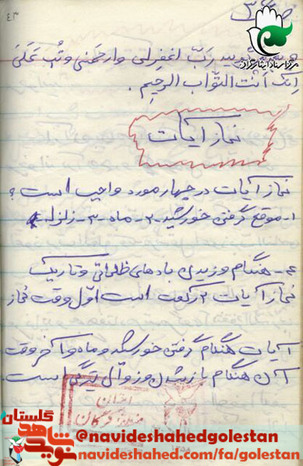 ۴۳
رب اغفرلی وارحمنی وتب علی
انک انت التواب الرحیم.
نماز آیات
نماز آیات در چهار مورد واجب است؟
۱- موقع گرفتن خورشید ۲- ماه ۳- زلزله
۴- هنگام وزیدن بادهای ظلمانی و تاریک
نماز آیات ۲ رکعت است اول وقت نماز
آیات هنگام گرفتن خورشید و ماه و آخر وقت
آن هنگام باز شدن و زوال است.
گلستان
نوید شاهد
@navideshahedgolestan
navideshahed.com/fa/golestan